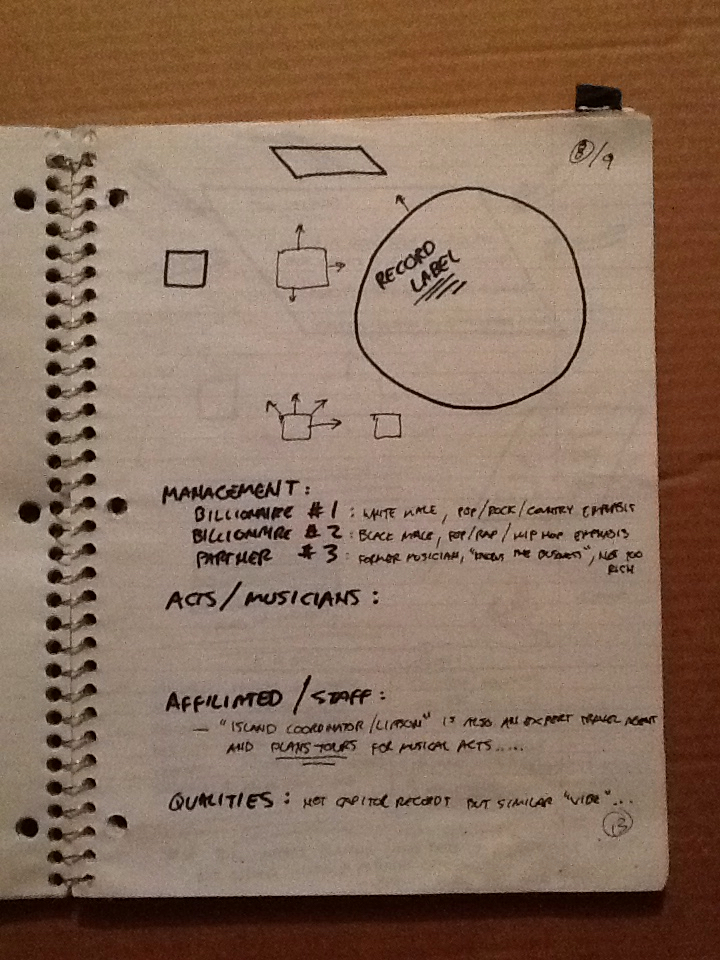 8/9
RECORD
LABEL
MANAGEMENT:
BILLIONAIRE #1: WHITE MALE, POP/ROCK/COUNTRY EMPHASIS
BILLIONAIRE #2: BLACK MALE, POP/RAP/HIP HOP EMPHASIS
PARTNER #3: FORMER MUSICIAN, "KNOWS THE BUSINESS", NOT TOO
RICH
ACTS/MUSICIANS:
AFFILIATED/STAFF:
— "ISLAND COORDINATOR/LIASON" IS ALSO AN EXPERT TRAVEL AGENT
AND PLANS TOURS FOR MUSICAL ACTS.....
QUALITIES: NOT CAPITOL RECORDS BUT SIMILAR "VIBE"...
13